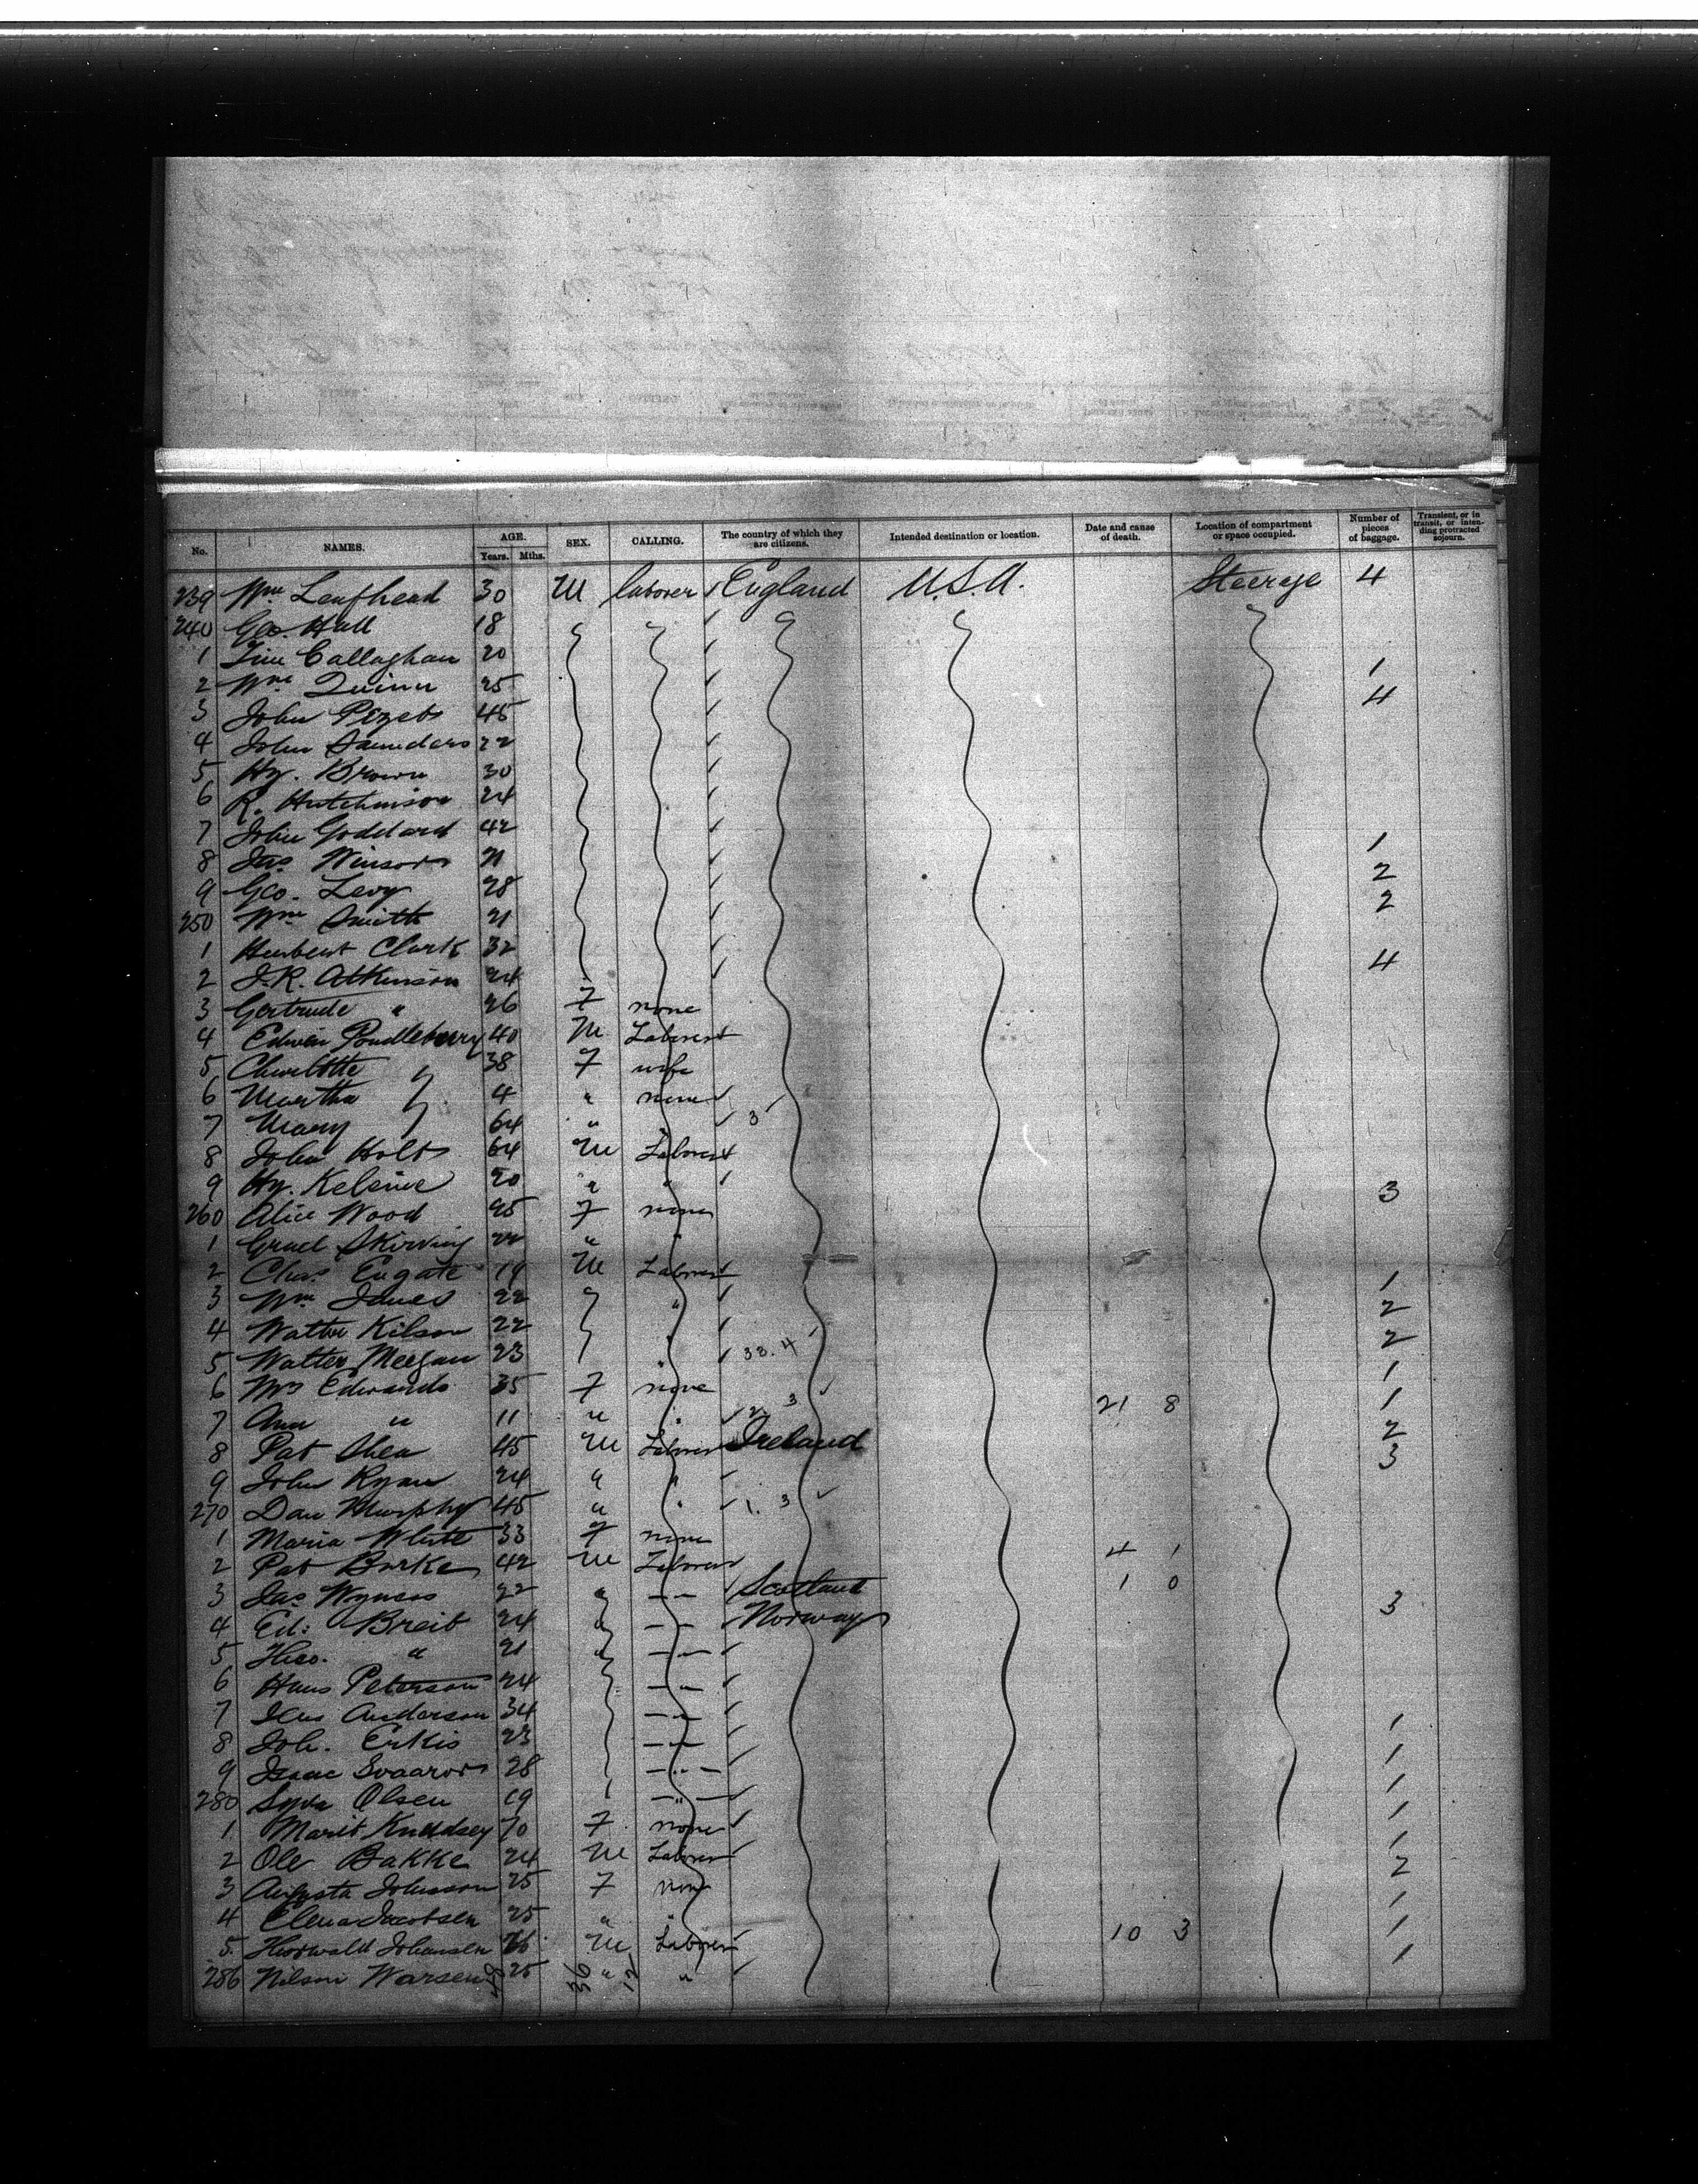 No. NAMES. AGE. Years. Mths. SEX. CALLING. The country of which they are citizens. Intended destination or location. Date and cause of death. Location of compartment or space occupied. Number of pieces of baggage. Transient, or in transit, or intending protracted sojourn.
239 Wm Leafhead 30 M laborer England U.S.A. Steerage 4
240 Geo. Hall 18
1 Tim Callaghan 20 1
2 Wm Quinn 25 4
3 John 45
4 John Saunders 22
5 Hy. Brown 30
6 R. Hutchinson 24
7 John Goddard 42 1
8 Jas Winsor 21 2
9 Geo. Levy 28 2
250 Wm Smith 21
1 Herbert Clark 32 4
2 J.R. Atkinson 24
3 Gertrude " 26 F none
4 Edwin Pendlebury 40 M Laborer
5 Charlotte 38 F wife
6 Martha 4 " none
7 Mary 64 " " 3
8 John Holt 64 M Laborer
9 Hy. 20 " " 3
260 Alice Wood 25 F none
1 Grace Skirving 22 " "
2 Chas Eugate 19 M Laborer 1
3 Wm Jones 22 " 2
4 Walter Kilson 22 " 2
5 Walter Meegan 23 " 33. 4 1
6 Mrs Edwards 35 F none 21 8 1
7 Ann " 11 " " 2. 3 2
8 Pat Shea 45 M Laborer Ireland 3
9 John Ryan 24 " "
270 Dan Murphy 45 " " 1. 3
1 Maria White 33 F none
2 Pat Burke 42 M Laborer 4 1
3 Jas 22 " — " — Scotland 1 0 3
4 Ed. Breit 24 " — " — Norway
5 Theo. " 21 " — " —
6 Hans Peterson 24 — " —
7 Anderson 34 — " — 1
8 Joh. Erkis 23 — " — 1
9 Isaac 28 — " — 1
280 Olsen 19 — " — 1
1 Marit Knudsey 70 F none 1
2 Ole Bakke 24 M Laborer 2
3 Augusta Johnson 25 F none 1
4 Elena Jacobsen 25 " " 10 3 1
5 Thorwald Johansen 26 M Laborer 1
286 Nilson Warsen 25 " "
48 36 12